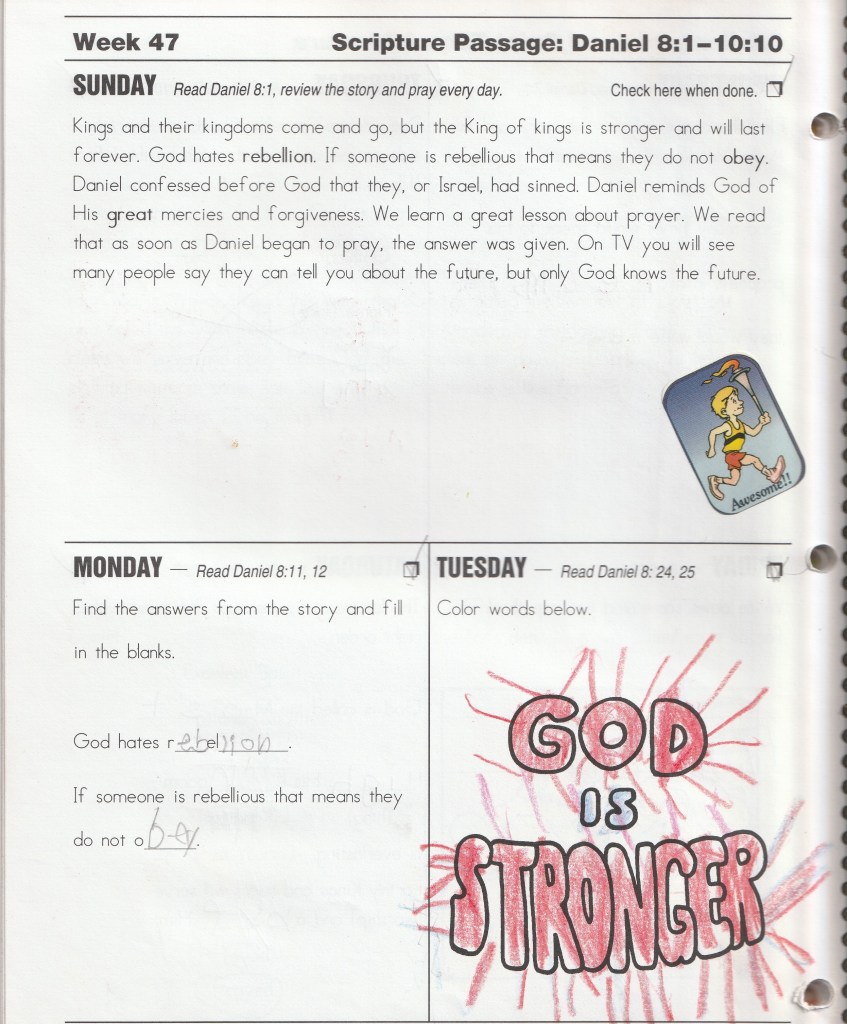 Week 47 Scripture Passage: Daniel 8:1–10:10
SUNDAY Read Daniel 8:1, review the story and pray every day. Check here when done.
Kings and their kingdoms come and go, but the King of kings is stronger and will last
forever. God hates rebellion. If someone is rebellious that means they do not obey.
Daniel confessed before God that they, or Israel, had sinned. Daniel reminds God of
His great mercies and forgiveness. We learn a great lesson about prayer. We read
that as soon as Daniel began to pray, the answer was given. On TV you will see
many people say they can tell you about the future, but only God knows the future.
Awesome!!
MONDAY — Read Daniel 8:11, 12
Find the answers from the story and fill
in the blanks.
God hates rebellion.
If someone is rebellious that means they
do not obey.
TUESDAY — Read Daniel 8: 24, 25
Color words below.
GOD
IS
STRONGER